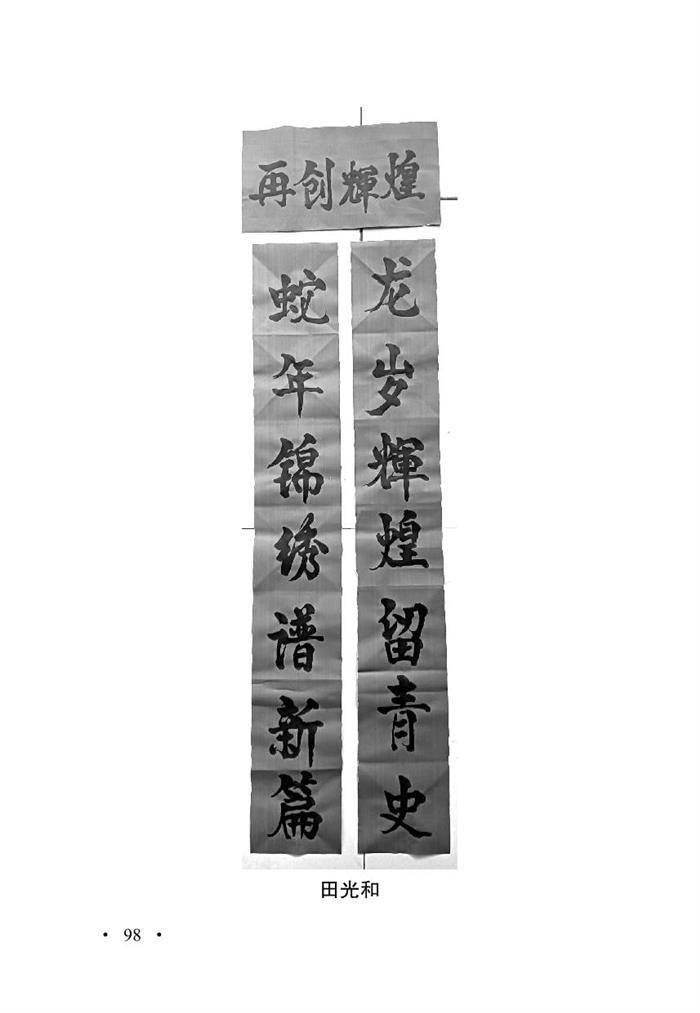 再创輝煌
龙岁輝煌留青史
蛇年锦绣谱新篇
田光和
• 98 •